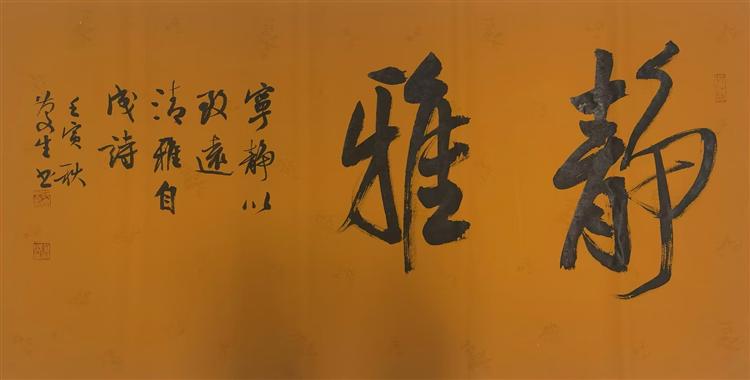 静雅
寧静以
致遠
清雅自
成詩
壬寅秋
生书